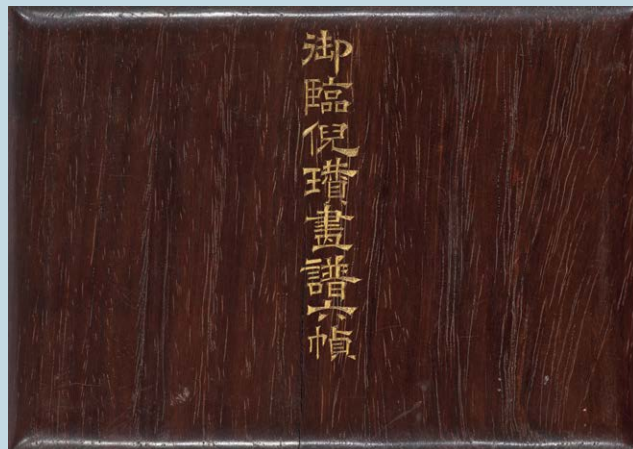 御臨倪瓚畫譜六幀